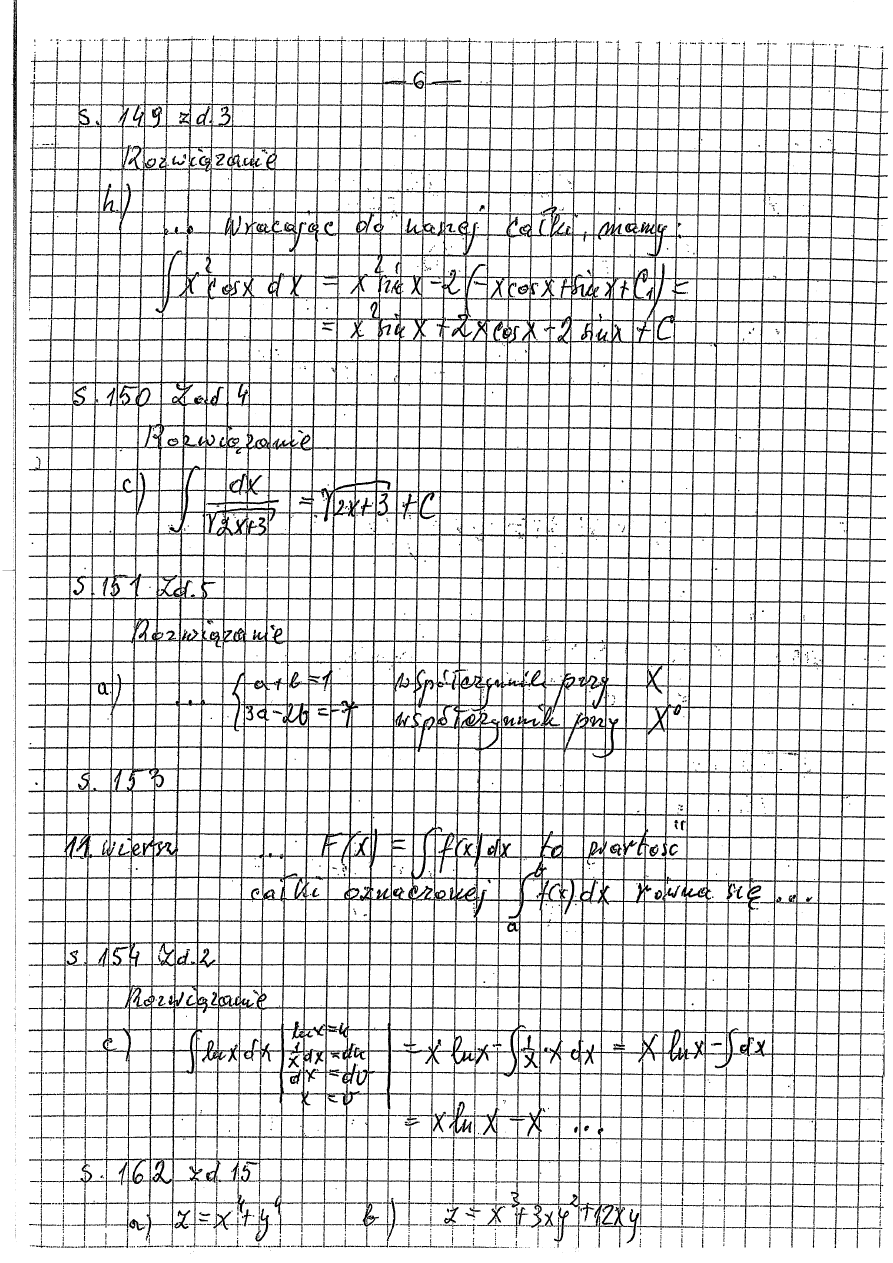 — 6 —
s. 149 zd. 3
Rozwiązanie
h)
... Wracając do naszej całki, mamy:
∫ x² cosx dx = x² sin x - 2 (-x cosx + sin x + C₁) =
= x² sin x + 2x cosx - 2 sinx + C
s. 150 Zad. 4
Rozwiązanie
c) ∫ dx/√(2x+3) = √(2x+3) + C
s. 151 Zd. 5
Rozwiązanie
a) ... { a + b = 1 współczynnik przy X
3a - 2b = -7 współczynnik przy X⁰
s. 153
11. wiersz ... F(x) = ∫ f(x) dx to wartość
całki oznaczonej ∫ₐᵇ f(x) dx równa się ...
s. 154 Zd. 2
Rozwiązanie
c) ∫ ln x dx | ln x = u
1/x dx = du
dx = dv
x = v | = x ln x - ∫ 1/x · x dx = x ln x - ∫ dx
= x ln x - x ...
s. 162 zd. 15
a) z = x⁴ + y⁴ b) z = x³ + 3xy² + 12xy